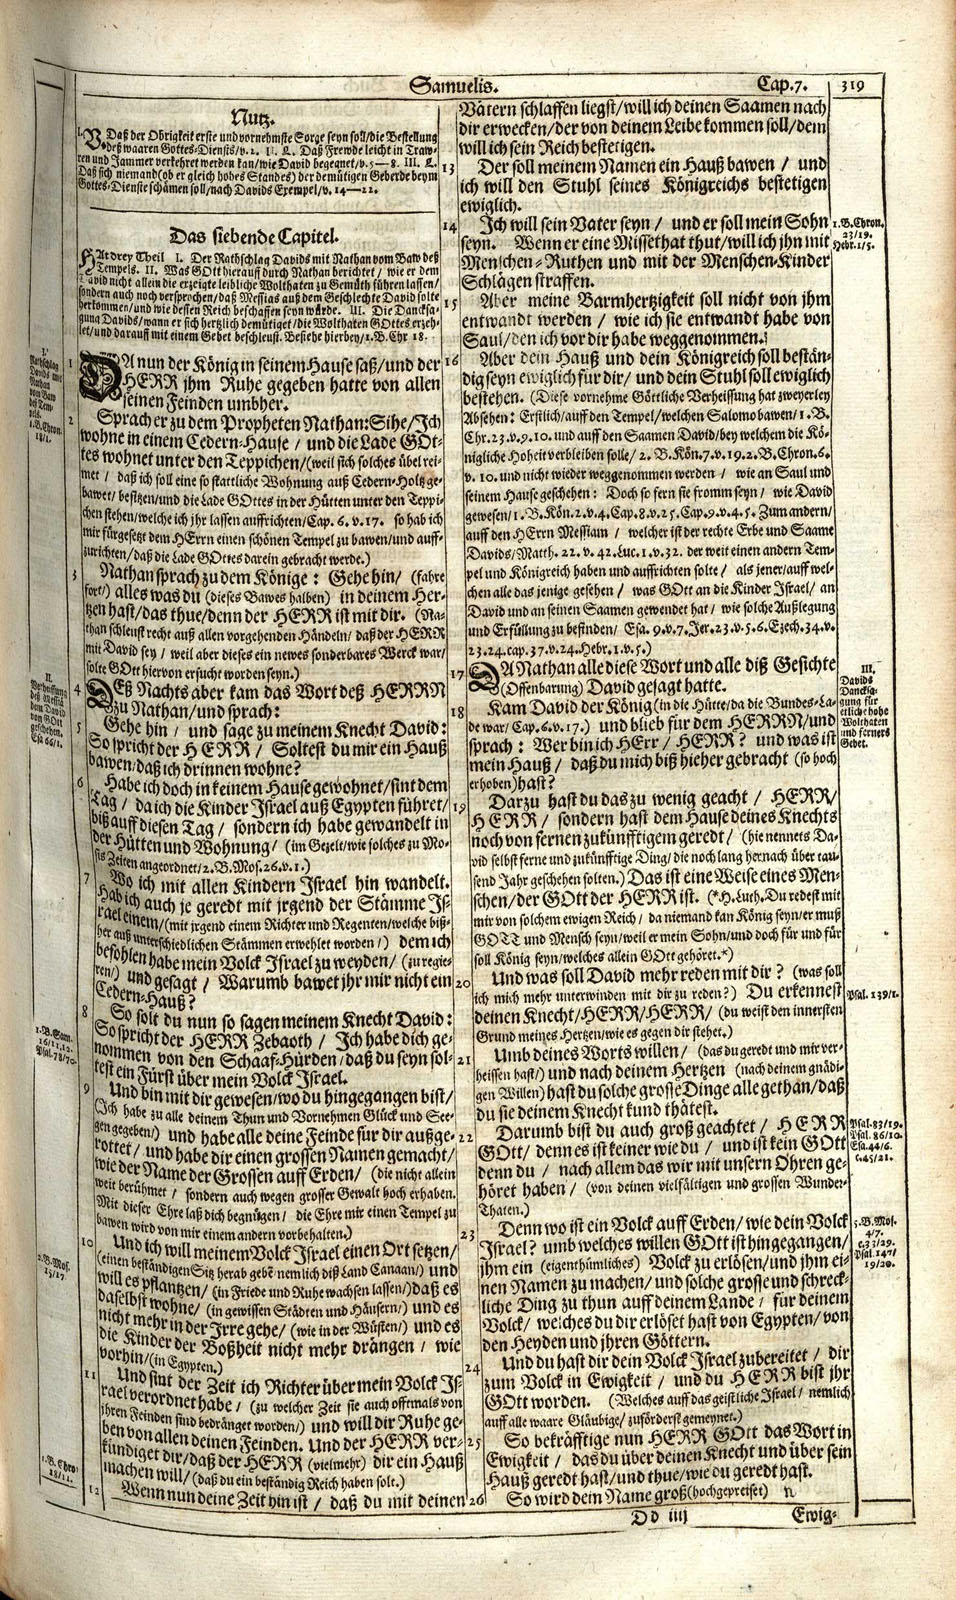 Samuelis.
Cap. 7.
319
Nutz.
I. Daß der Obrigkeit erste und vornehmste Sorge seyn soll/die Bestellung
deß waaren Gottes-Diensts/v. 2. II. L. Daß Frewde leicht in Traw-
ren und Jammer verkehret werden kan/wie David begegnet/v. 5—8. III. L.
Daß sich niemand (ob er gleich hohes Standes) der demütigen Geberde beym
Gottes-Dienste schämen soll/nach Davids Exempel/v. 14—22.
Das siebende Capitel.
HAt drey Theil I. Der Rathschlag Davids mit Nathan vom Baw deß
Tempels. II. Was GOtt hierauff durch Nathan berichtet / wie er dem
David nicht allein die erzeigte leibliche Wolthaten zu Gemüth führen lassen/
sondern auch noch versprochen/daß Messias auß dem Geschlechte David solte
herkommen/und wie dessen Reich beschaffen seyn würde. III. Die Dancksa-
gung Davids/wann er sich hertzlich demütiget/die Wolthaten GOttes erzeh-
let/und darauff mit einem Gebet beschleust. Besiehe hierbey/1. B. Chr 18.
I.
Rathschlag
Davids mit
Nathan
vom Baw
deß Tem-
pels.
1. B. Chron.
18/1.
1 DA nun der König in seinem Hause saß/und der
HERR jhm Ruhe gegeben hatte von allen
seinen Feinden umbher.
2 Sprach er zu dem Propheten Nathan: Sihe/Ich
wohne in einem Cedern-Hause / und die Lade GOt-
tes wohnet unter den Teppichen/(weil sich solches übel rei-
met / daß ich soll eine so stattliche Wohnung auß Cedern-Holtz ge-
bawet/besitzen/und die Lade GOttes in der Hütten unter den Teppi-
chen stehen/welche ich jhr lassen auffrichten/Cap. 6. v. 17. so hab ich
mir fürgesetzt dem HErrn einen schönen Tempel zu bawen/und auff-
zurichten/daß die Lade GOttes darein gebracht werde.)
3 Nathan sprach zu dem Könige: Gehe hin/ (fahre
fort/) alles was du (dieses Bawes halben) in deinem Her-
tzen hast/das thue/denn der HERR ist mit dir. (Na-
than schleust recht auß allen vorgehenden Händeln/daß der HERR
mit David sey / weil aber dieses ein newes sonderbares Werck war/
solte GOtt hiervon ersucht worden seyn.)
II.
Verheissung
deß Messiä
dem David
von GOtt
geschehen.
Esa 66/1.
4 DEß Nachts aber kam das Wort deß HERRN
zu Nathan/und sprach:
5 Gehe hin / und sage zu meinem Knecht David:
So spricht der HERR / Soltest du mir ein Hauß
bawen/daß ich drinnen wohne?
6 Habe ich doch in keinem Hause gewohnet/sint dem
Tag / da ich die Kinder Israel auß Egypten führet/
biß auff diesen Tag / sondern ich habe gewandelt in
der Hütten und Wohnung / (im Gezelt/wie solches zu Mo-
sis Zeiten angeordnet/2. B. Mos. 26. v. 1.)
7 Wo ich mit allen Kindern Israel hin wandelt.
Hab ich auch je geredt mit jrgend der Stämme Is-
rael einem/(mit jrgend einem Richter und Regenten/welche biß-
her auß unterschiedlichen Stämmen erwehlet worden/) dem ich
befohlen habe mein Volck Israel zu weyden/ (zu regie-
ren/) und gesagt / Warumb bawet jhr mir nicht ein
Cedern-Hauß?
8 So solt du nun so sagen meinem Knecht David:
So spricht der HERR Zebaoth / Ich habe dich ge-
nommen von den Schaaf-Hürden/daß du seyn sol-
test ein Fürst über mein Volck Israel.
1. B. Sam.
16/11,12.
Psal. 78/70.
9 Und bin mit dir gewesen/wo du hingegangen bist/
(Ich habe zu alle deinem Thun und Vornehmen Glück und See-
gen gegeben/) und habe alle deine Feinde für dir außge-
rottet/ und habe dir einen grossen Namen gemacht/
wie der Name der Grossen auff Erden/ (die nicht allein
weit berühmet / sondern auch wegen grosser Gewalt hoch erhaben.
Mit dieser Ehre laß dich begnügen / die Ehre mir einen Tempel zu
bawen wird von mir einem andern vorbehalten.)
10 Und ich will meinem Volck Israel einen Ort setzen/
(einen beständigen Sitz herab gebē nemlich diß Land Canaan/) und
will es pflantzen/ (in Friede und Ruhe wachsen lassen/) daß es
daselbst wohne/ (in gewissen Städten und Häusern/) und es
nicht mehr in der Irre gehe/ (wie in der Wüsten/) und es
die Kinder der Boßheit nicht mehr drängen/ wie
vorhin/(in Egypten.)
2. B. Mos.
15/17
11 Und sint der Zeit ich Richter über mein Volck Is-
rael verordnet habe / (zu welcher Zeit sie auch offtmals von
jhren Feinden sind bedränget worden/) und will dir Ruhe ge-
ben von allen deinen Feinden. Und der HERR ver-
kündiget dir/daß der HERR (vielmehr) dir ein Hauß
machen will/ (daß du ein beständig Reich haben solt.)
1. B. Chro.
18/11.
12 Wenn nun deine Zeit hin ist / daß du mit deinen
Vätern schlaffen liegst/will ich deinen Saamen nach
dir erwecken/der von deinem Leibe kommen soll/dem
will ich sein Reich bestetigen.
13 Der soll meinem Namen ein Hauß bawen / und
ich will den Stuhl seines Königreichs bestetigen
ewiglich.
14 Ich will sein Vater seyn / und er soll mein Sohn
seyn. Wenn er eine Missethat thut/will ich jhn mit
Menschen-Ruthen und mit der Menschen-Kinder
Schlägen straffen.
1. B. Chron.
23/19.
Hebr. 1/5.
15 Aber meine Barmhertzigkeit soll nicht von jhm
entwandt werden / wie ich sie entwandt habe von
Saul/den ich vor dir habe weggenommen.
16 Aber dein Hauß und dein Königreich soll bestän-
dig seyn ewiglich für dir/ und dein Stuhl soll ewiglich
bestehen. (Diese vornehme Göttliche Verheissung hat zweyerley
Absehen: Erstlich/auff den Tempel/welchen Salomo bawen/1. B.
Chr. 23. v. 9. 10. und auff den Saamen David/bey welchem die Kö-
nigliche Hoheit verbleiben solle/ 2. B. Kön. 7. v. 19. 2. B. Chron. 6.
v. 10. und nicht wieder weggenommen werden / wie an Saul und
seinem Hause geschehen: Doch so fern sie fromm seyn / wie David
gewesen/1. B. Kön. 2. v. 4. Cap. 8. v. 25. Cap. 9. v. 4. 5. Zum andern/
auff den HErrn Messiam / welcher ist der rechte Erbe und Saame
Davids/Matth. 22. v. 42. Luc. 1. v. 32. der weit einen andern Tem-
pel und Königreich haben und auffrichten solte / als jener/auff wel-
chen alle das jenige gesehen / was GOtt an die Kinder Israel/ an
David und an seinen Saamen gewendet hat / wie solche Außlegung
und Erfüllung zu befinden/ Esa. 9. v. 7. Jer. 23. v. 5. 6. Ezech. 34. v.
23. 24. cap. 37. v. 24. Hebr. 1. v. 5.)
III.
Davids
Dancksa-
gung für
etliche hohe
Wolthaten
und ferners
Gebet.
17 DA Nathan alle diese Wort und alle diß Gesichte
(Offenbarung) David gesagt hatte.
18 Kam David der König (in die Hütte/da die Bundes-La-
de war/Cap. 6. v. 17.) und blieb für dem HERRN/und
sprach: Wer bin ich HErr / HERR? und was ist
mein Hauß / daß du mich biß hieher gebracht (so hoch
erhoben) hast?
19 Darzu hast du das zu wenig geacht / HERR/
HERR / sondern hast dem Hause deines Knechts
noch von fernen zukünfftigem geredt/ (hie nennets Da-
vid selbst ferne und zukünfftige Ding/die noch lang hernach über tau-
send Jahr geschehen solten.) Das ist eine Weise eines Men-
schen/der GOtt der HERR ist. (*H. Luth. Du redest mit
mir von solchem ewigen Reich / da niemand kan König seyn/er muß
GOTT und Mensch seyn/weil er mein Sohn/und doch für und für
soll König seyn/welches allein GOtt gehöret.*)
20 Und was soll David mehr reden mit dir? (was soll
ich mich mehr unterwinden mit dir zu reden?) Du erkennest
deinen Knecht/HERR/HERR/ (du weist den innersten
Grund meines Hertzen/wie es gegen dir stehet.)
Psal. 139/1.
21 Umb deines Worts willen/ (das du geredt und mir ver-
heissen hast/) und nach deinem Hertzen (nach deinem gnädi-
gen Willen) hast du solche grosse Dinge alle gethan/daß
du sie deinem Knecht kund thätest.
22 Darumb bist du auch groß geachtet / HERR
GOtt/ denn es ist keiner wie du / und ist kein GOtt
denn du / nach allem das wir mit unsern Ohren ge-
höret haben / (von deinen vielfältigen und grossen Wunder-
Thaten.)
Psal. 83/19.
Psal. 86/10.
Esa. 44/6.
c. 45/21.
23 Denn wo ist ein Volck auff Erden/wie dein Volck
Israel? umb welches willen GOtt ist hingegangen/
jhm ein (eigenthümliches) Volck zu erlösen/und jhm ei-
nen Namen zu machen/ und solche grosse und schreck-
liche Ding zu thun auff deinem Lande / für deinem
Volck/ welches du dir erlöset hast von Egypten/ von
den Heyden und jhren Göttern.
5. B. Mos.
4/7.
c. 33/29.
Psal. 147/
19/20.
24 Und du hast dir dein Volck Israel zubereitet / dir
zum Volck in Ewigkeit / und du HERR bist jhr
GOtt worden. (Welches auff das geistliche Israel / nemlich
auff alle waare Gläubige/ zuförderst gemeynet.)
25 So bekräfftige nun HERR GOtt das Wort in
Ewigkeit / das du über deinen Knecht und über sein
Hauß geredt hast/und thue/wie du geredt hast.
26 So wird dein Name groß (hochgepreiset)
Dd iiij
Ewig-